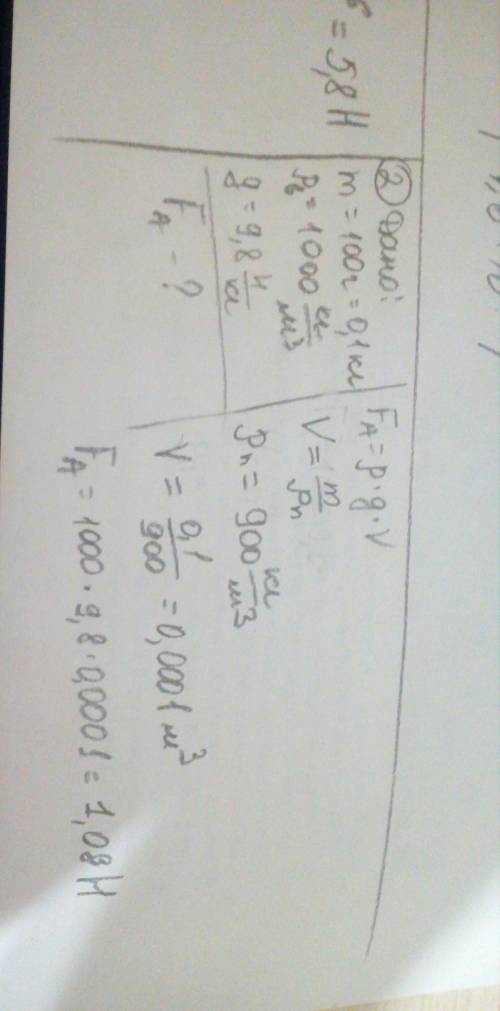 = 5,8 Н
② Дано:
m = 100г = 0,1 кг
ρв = 1000 кг/м³
g = 9,8 Н/кг
FА - ?
FА = ρ · g · V
V = m/ρл
ρл = 900 кг/м³
V = 0,1/900 = 0,0001 м³
FА = 1000 · 9,8 · 0,0001 = 1,08 Н